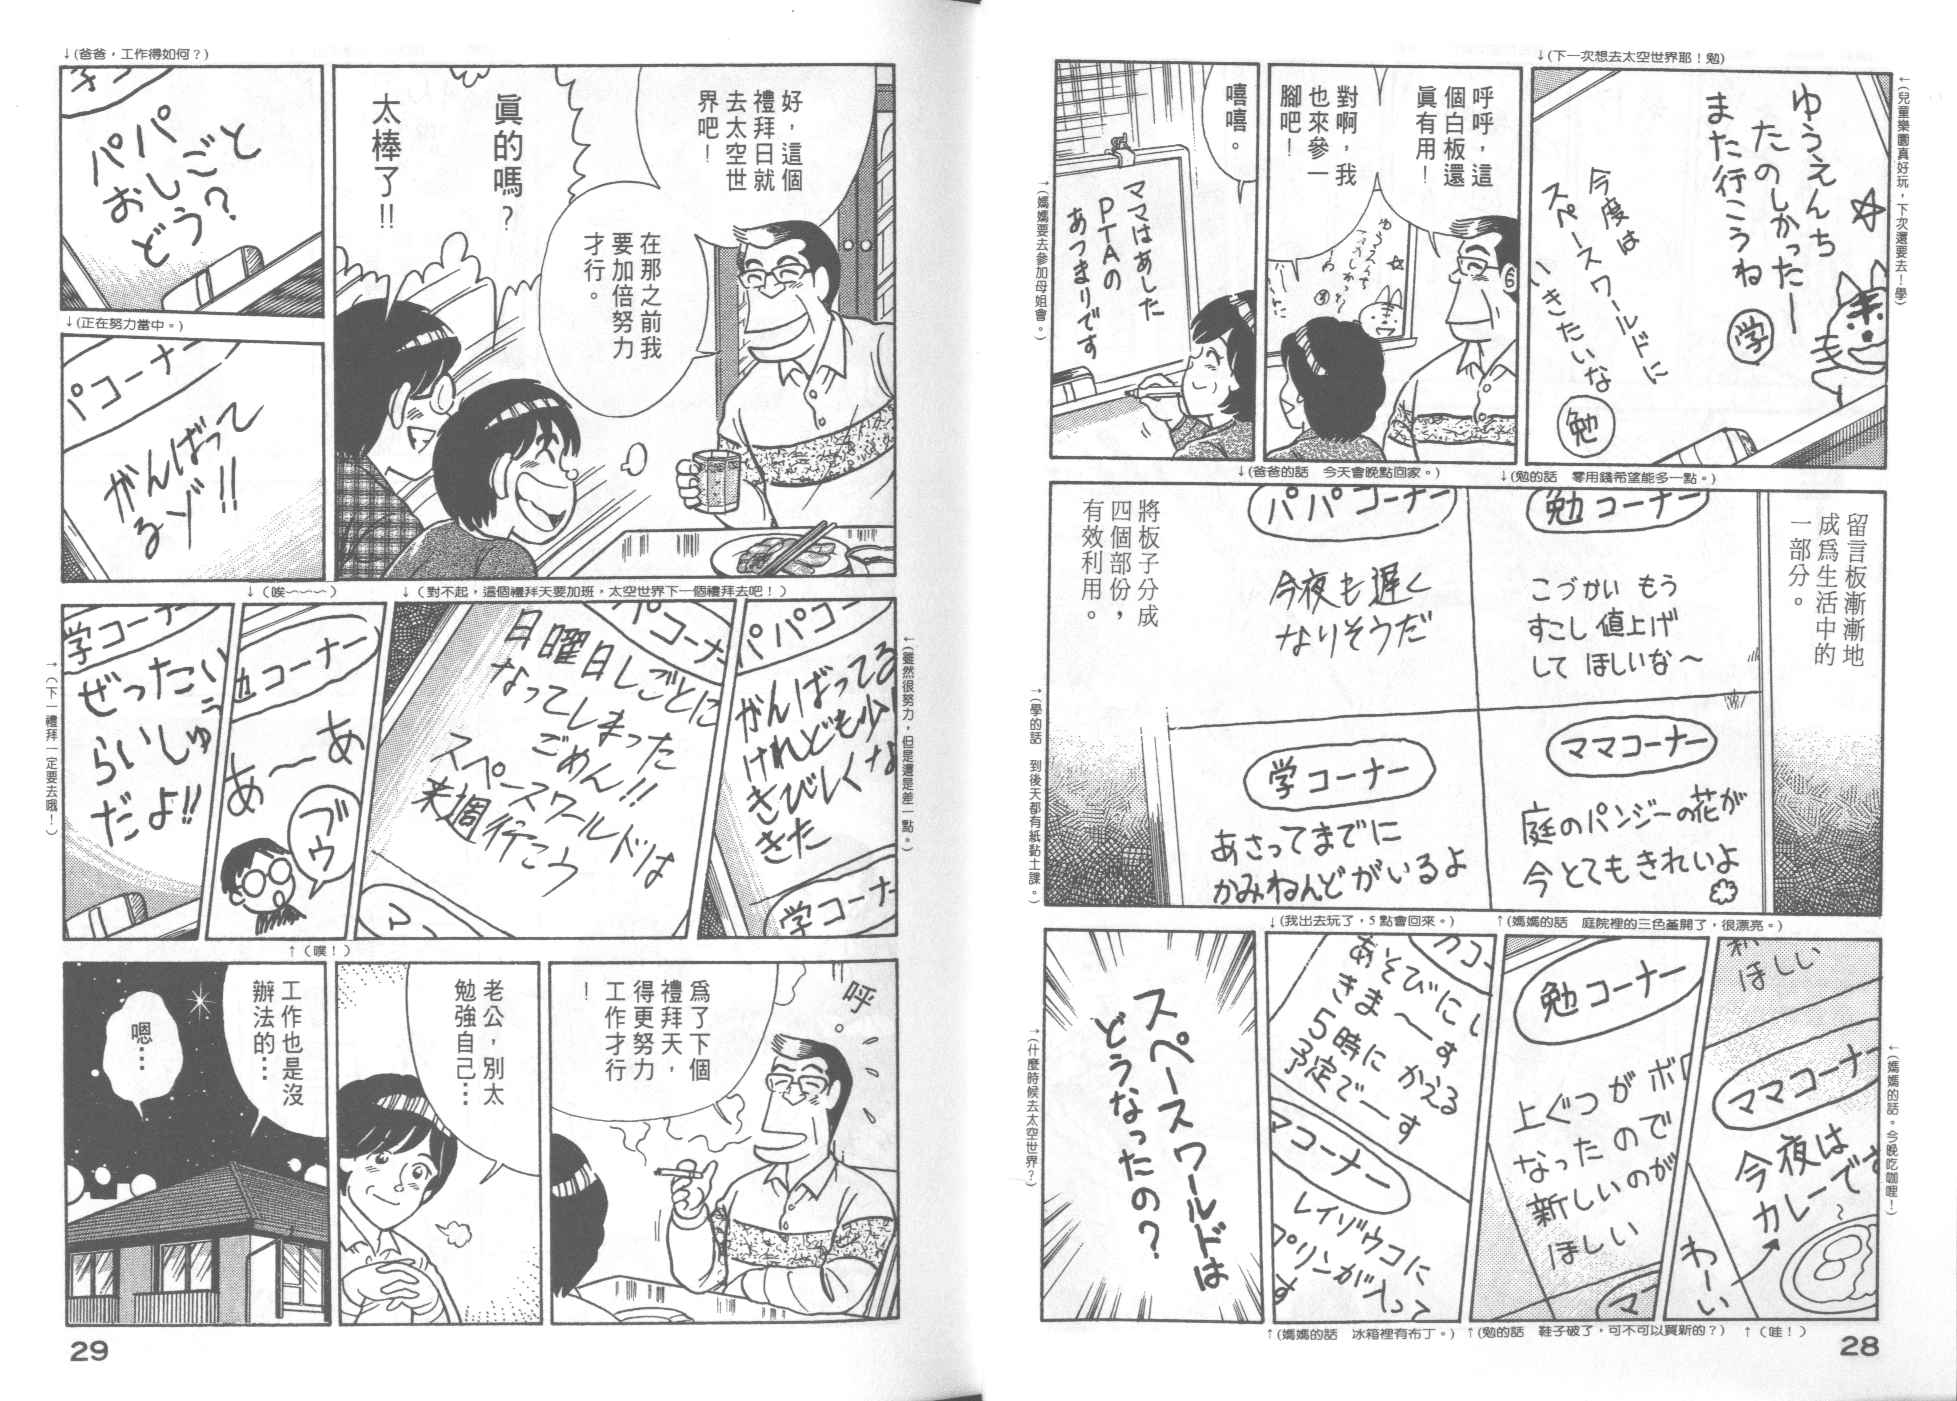 ↓(下一次想去太空世界耶！勉)
←(兒童樂園真好玩，下次還要去！學)
ゆうえんち
たのしかったー
また行こうね
学
今度は
スペースワールドに
いきたいな
勉
呼呼，這
個白板還
眞有用！
對啊，我
也來參一
腳吧！
嘻嘻。
ママはあした
PTAの
あつまりです
→(媽媽要去參加母姐會。)
↓(勉的話　零用錢希望能多一點。)
↓(爸爸的話　今天會晚點回家。)
留言板漸漸地
成爲生活中的
一部分。
勉コーナー
こづかい もう
すこし 値上げ
して ほしいな〜
パパコーナー
今夜も遅く
なりそうだ
ママコーナー
庭のパンジーの花が
今とてもきれいよ
学コーナー
あさってまでに
かみねんどがいるよ
將板子分成
四個部份，
有效利用。
→(學的話　到後天都有紙黏土課。)
↑(媽媽的話　庭院裡的三色菫開了，很漂亮。)
↓(我出去玩了，5點會回來。)
←(媽媽的話。今晚吃咖哩！)
ほしい
ママコーナー
今夜は
カレーです
わーい
↑（哇！）
勉コーナー
上ぐつがボロ
なったので
新しいのが
ほしい
マ
↑(勉的話　鞋子破了，可不可以買新的？)
あそびにい
きま〜す
5時に かえる
予定でーす
マコーナー
レイゾウコに
プリンがはいって
↑(媽媽的話　冰箱裡有布丁。)
スペースワールドは
どうなったの？
→(什麼時候去太空世界？)
28
好，這個
禮拜日就
去太空世
界吧！
在那之前我
要加倍努力
才行。
眞的嗎？
太棒了!!
↓(爸爸，工作得如何？)
パパ
おしごと
どう？
↓(正在努力當中。)
パコーナー
がんばって
るゾ!!
←(雖然很努力，但是還是差一點。)
パパコー
がんばってる
けれども少し
きびしくな
きた
学コーナ
↓（對不起，這個禮拜天要加班，太空世界下一個禮拜去吧！）
パコーナ
日曜日しごとに
なってしまった
ごめん!!
スペースワールドは
来週行こう
マ
↓（唉~~~）
勉コーナー
あ〜あ
ブウ
↑（噗！）
学コーナー
ぜったい
らいしゅう
だよ!!
→(下一禮拜一定要去哦！)
呼。
爲了下個
禮拜天，
得更努力
工作才行
！
老公，別太
勉強自己…
工作也是沒
辦法的…
嗯…
29